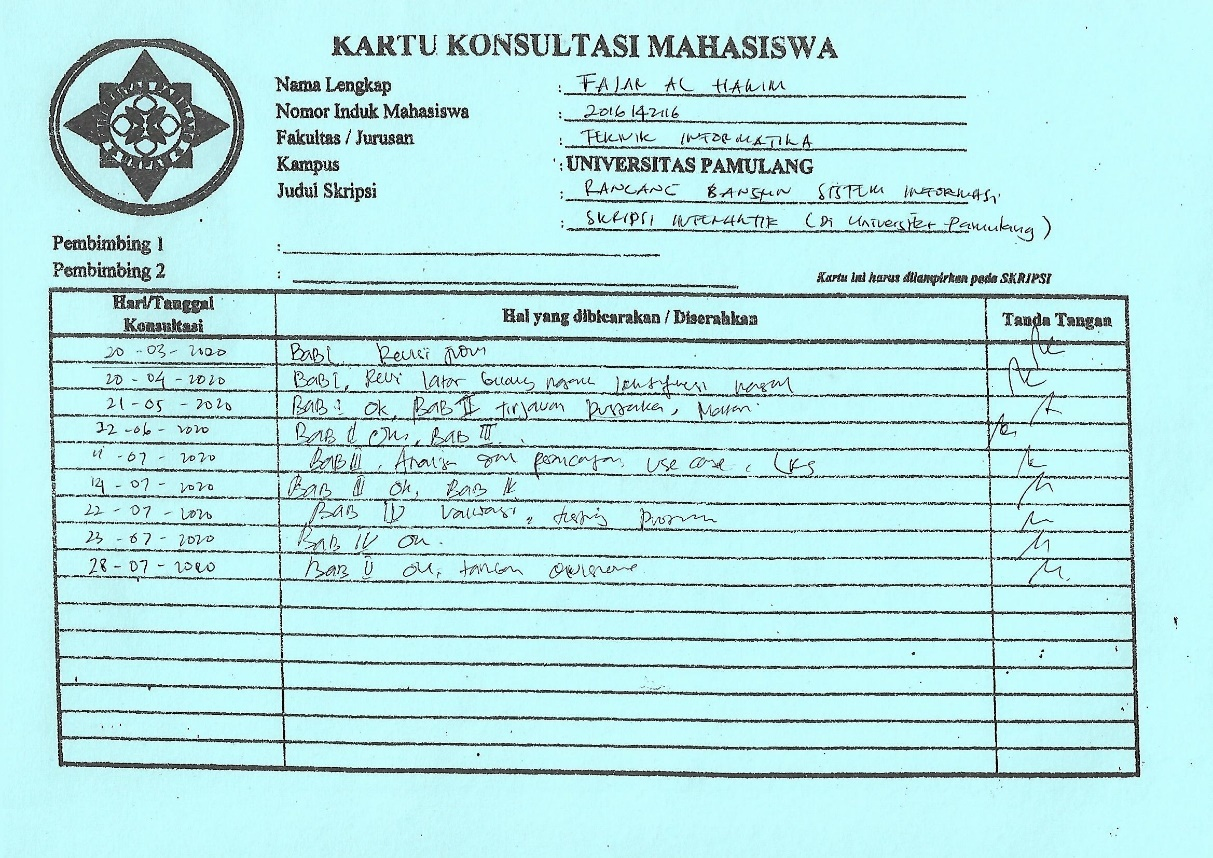 KARTU KONSULTASI MAHASISWA
Nama Lengkap : FAJAR AL HAKIM
Nomor Induk Mahasiswa : 2016142116
Fakultas / Jurusan : TEKNIK INFORMATIKA
Kampus : UNIVERSITAS PAMULANG
Judul Skripsi : RANCANG BANGUN SISTEM INFORMASI
: SKRIPSI INTERAKTIF (Di Universitas Pamulang)
Pembimbing 1 :
Pembimbing 2 :
Kartu ini harus dilampirkan pada SKRIPSI
Hari/Tanggal Konsultasi Hal yang dibicarakan / Diserahkan Tanda Tangan
20-03-2020 BAB I Revisi
20-04-2020 BAB I, latar
21-05-2020 BAB I ok, BAB II tinjauan pustaka,
22-06-2020 BAB II BAB III
11-07-2020 BAB III, Analisa dan use case, LRS
14-07-2020 BAB III ok, BAB IV
22-07-2020 BAB IV testing
23-07-2020 BAB IV ok.
28-07-2020 BAB V ok,